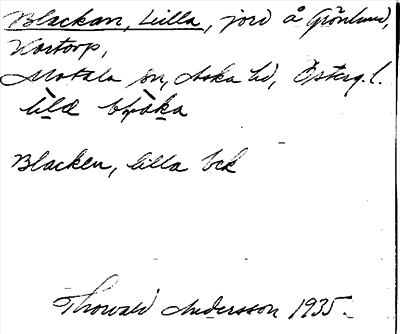 Blackan, Lilla, jord å Grönlund,
Kortorp,
Motala sn, Aska hd, Österg. l.
lìlæ
Blacken, lilla bck
Thorvald Andersson 1935.